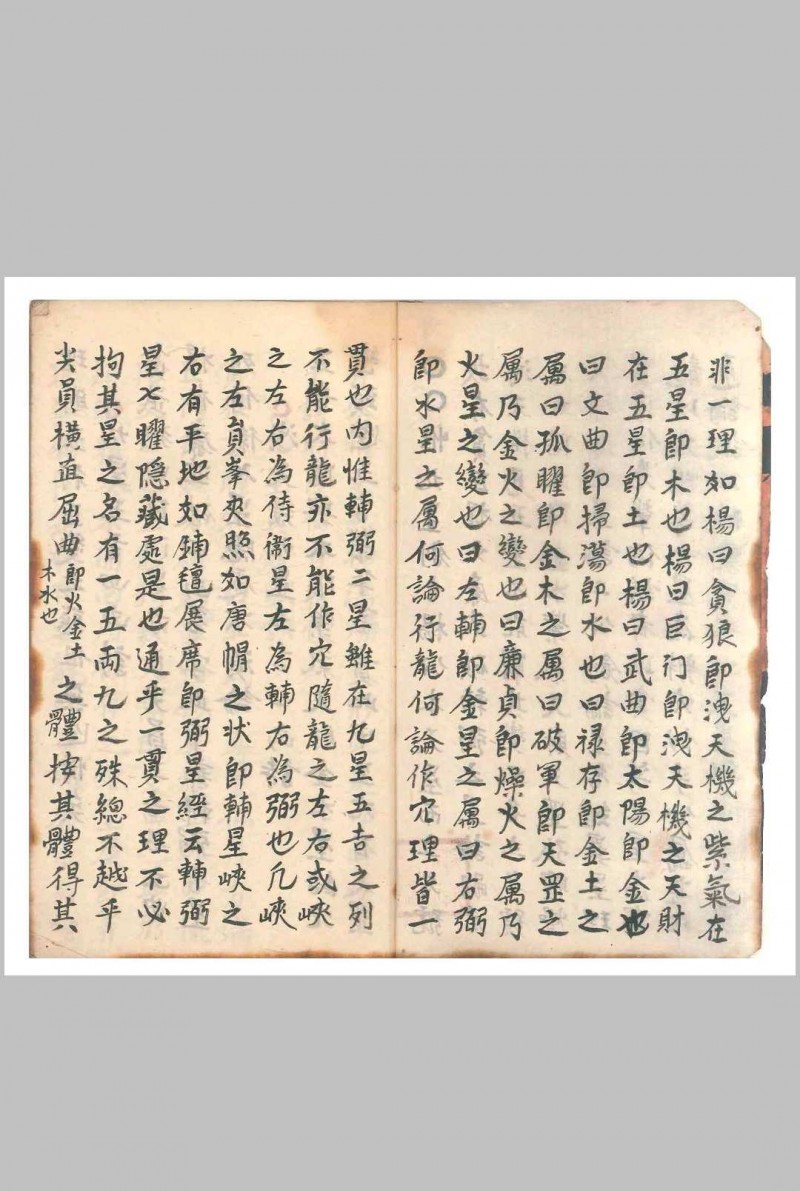 非一理如楊曰貪狼即洩天機之紫氣在
五星即木也楊曰巨门即洩天機之天財
在五星即土也楊曰武曲即太陽即金也
曰文曲即掃蕩即水也曰禄存即金土之
属曰孤曜即金木之属曰破軍即天罡之
属乃金火之變也曰廉貞即燥火之属乃
火星之變也曰左輔即金星之属曰右弼
即水星之属何論行龍何論作穴理皆一
貫也内惟輔弼二星雖在九星五吉之列
不能行龍亦不能作穴隨龍之左右或峽
之左右為侍衛星左為輔右為弼也凢峽
之左員峯夾照如唐帽之状即輔星峽之
右有平地如鋪氊展席即弼星經云輔弼
星七曜隱藏處是也通乎一貫之理不必
拘其星之名有一五両九之殊總不越乎
尖員横直屈曲即火金土木水也之體按其體得其